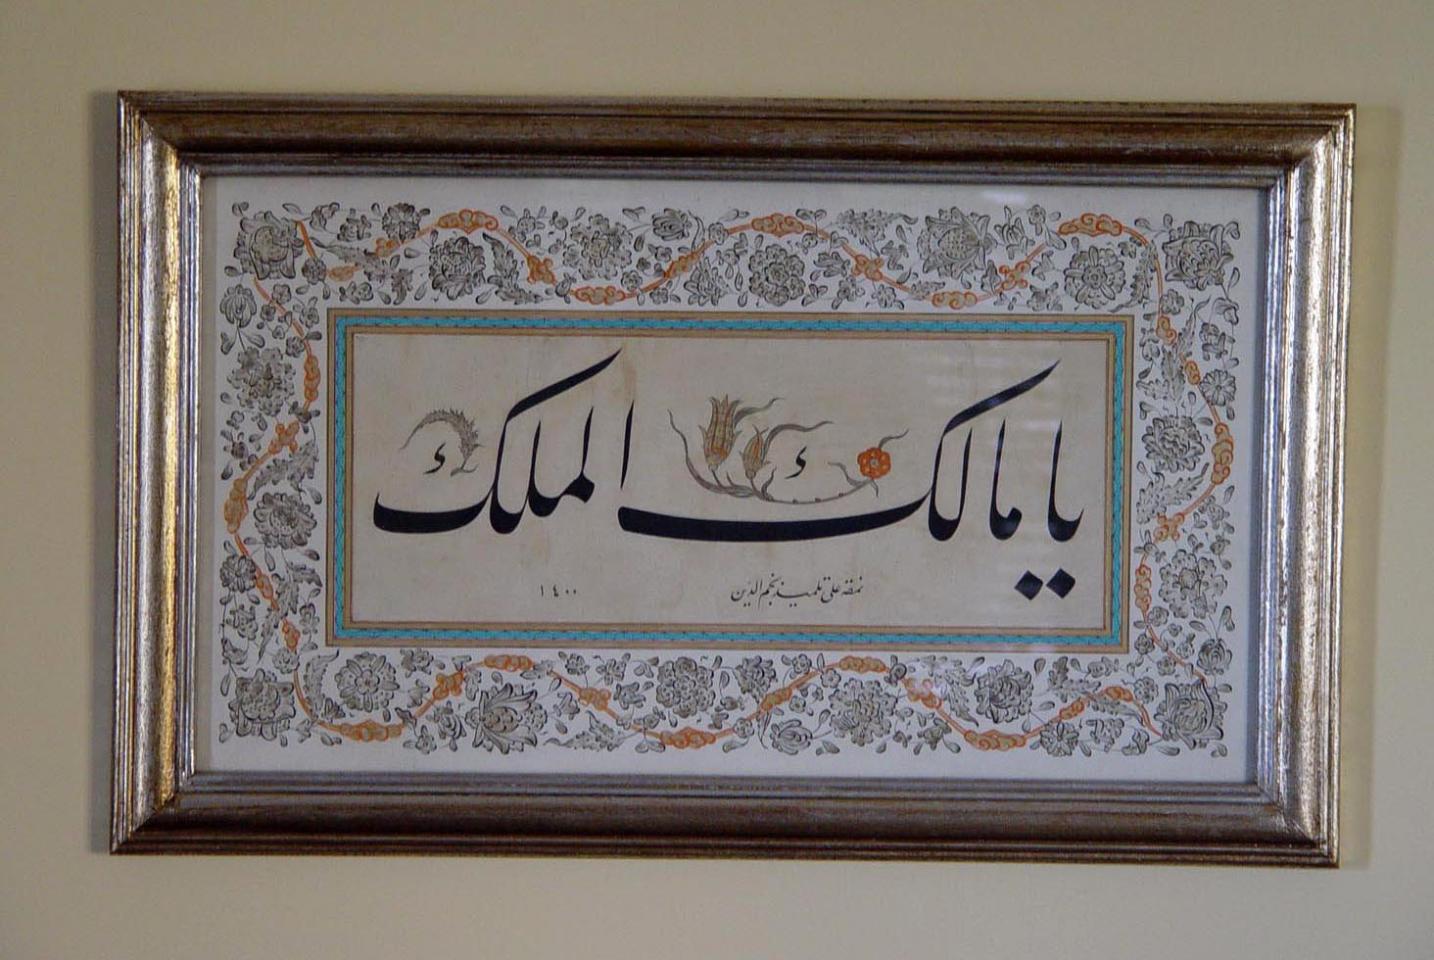 يا مالك الملك
نمقه علي تلميذ نجم الدين
١٤٠٠